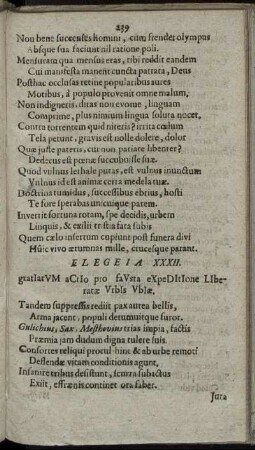 239
Non bene succenses homini, cum frendet olympus
Absque sua faciunt nil ratione poli.
Mensuram qua mensus eras, tibi reddit eandem
Cui manifesta manent cuncta patrata, Deus
Posthac occlusas retine popularibus aures
Motibus, à populo provenit omne malum,
Non indigneris, duas non evome, linguam
Comprime, plus nimium lingua soluta nocet,
Contra torrentem quid niteris? irrita cœlum
Tela petunt, gravis est nolle dolere, dolor
Quæ juste pateris, cur non patiare libenter?
Dedecus est pœnæ succubuisse suæ.
Quod vulnus lethale putas, est vulnus inunctum
Vulnus id est animæ certa medela tuæ.
Doctrina tumidus, successibus ebrius, hosti
Te fore sperabas unicuique parem.
Invertit fortuna rotam, spe decidis, urbem
Linquis, & exilii tristia fata subis
Quem cælo insertum cupiunt post funera divi
Huic vivo ærumnas mille, crucesque parant.
ELEGEIA XXXII.
gratIarVM aCtIo pro faVsta eXpeDItIone LIbe-
ratæ VrbIs VbIæ.
Tandem suppressis rediit pax aurea bellis,
Arma jacent, populi detumuitque furor.
Gulichius, Sax. Mesthovius trias impia, factis
Præmia jam dudum digna tulere suis.
Consortes reliqui procul hinc & ab urbe remoti
Deflendæ vitam conditionis agunt,
Insanire tribus desistunt, scurra subactus
Exiit, effrænis continet ora faber.
Jura